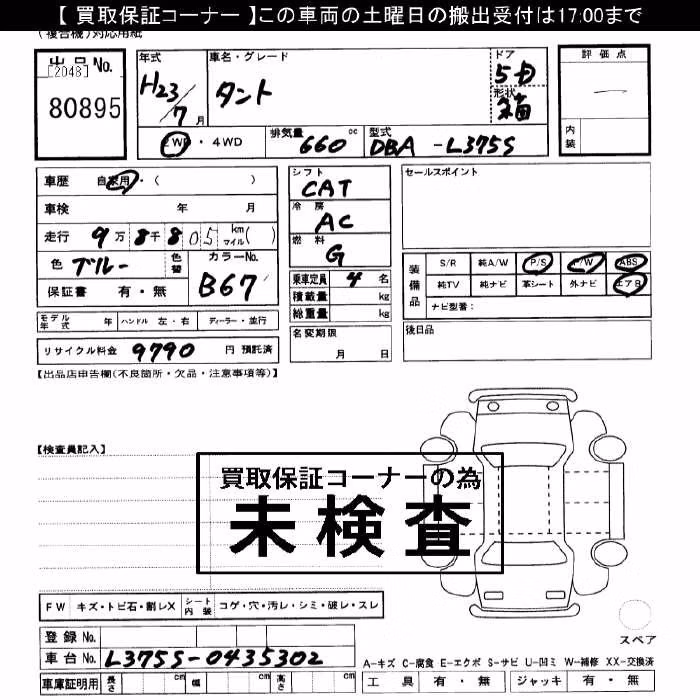 【 買取保証コーナー 】この車両の土曜日の搬出受付は17:00まで
(複合機)対応用紙
出品No.
[2048]
80895
年式
H23/7 月
車名・グレード
タント
ドア
5D
形状
箱
評価点
―
内装
2WD・4WD
排気量 660 cc
型式 DBA -L375S
車歴 自家用・( )
車検 年 月
走行 9万8千805 km マイル( )
色 ブルー
色替
カラーNo.
B67
保証書 有・無
シフト
CAT
冷房
AC
燃料
G
乗車定員 4 名
積載量 kg
総重量 kg
名変期限
月 日
セールスポイント
装備品
S/R 純A/W P/S P/W ABS
純TV 純ナビ 革シート 外ナビ エアB
ナビ型番:
後日品
モデル年式 年 ハンドル 左・右 ディーラー・並行
リサイクル料金 9790 円 預託済
【出品店申告欄(不良箇所・欠品・注意事項等)】
【検査員記入】
買取保証コーナーの為
未検査
FW キズ・トビ石・割レX シート内装 コゲ・穴・汚レ・シミ・破レ・スレ
登録No.
車台No. L375S-0435302
車庫証明用 長さ cm 幅 cm 高さ cm
スペア
A-キズ C-腐食 E-エクボ S-サビ U-凹ミ W-補修 XX-交換済
工具 有・無 ジャッキ 有・無